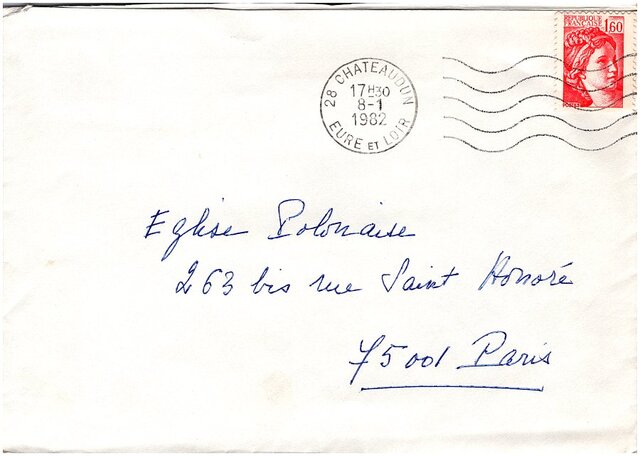 REPUBLIQUE
FRANÇAISE
1,60
POSTES
28 CHATEAUDUN
17H30
8-1
1982
EURE ET LOIR
Eglise Polonaise
263 bis rue Saint Honoré
75001 Paris